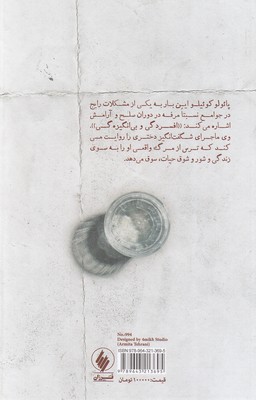 پائولو کوئیلو این بار به یکی از مشکلات رایج
در جوامع نسبتاً مرفه در دوران صلح و آرامش
اشاره می‌کند: «افسردگی و بی‌انگیزه‌گی»،
وی ماجرای شگفت‌انگیز دختری را روایت می
کند که ترس از مرگ واقعی او را به سوی
زندگی و شور و شوق حیات، سوق می‌دهد.
No.098
Designed by Amikh Studio
(Azmita Tehrani)
ISBN: 978-964-321-369-5
9789643213695
قیمت: ۱۰۰۰۰۰ تومان